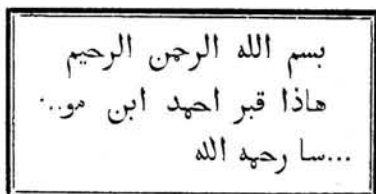 بسم الله الرحمن الرحيم
هاذا قبر احمد ابن مو..
...سا رحمه الله